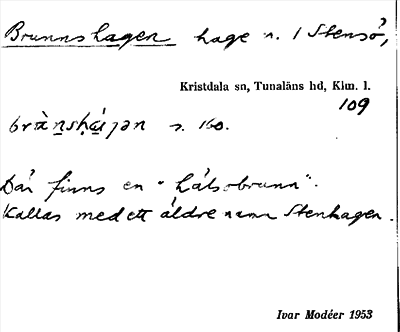 Brunnshagen hage n. 1 Stensö,
Kristdala sn, Tunaläns hd, Klm. l.
109
s. 160.
Där finns en "hälsobrunn".
Kallas med ett äldre namn Stenhagen.
Ivar Modéer 1953